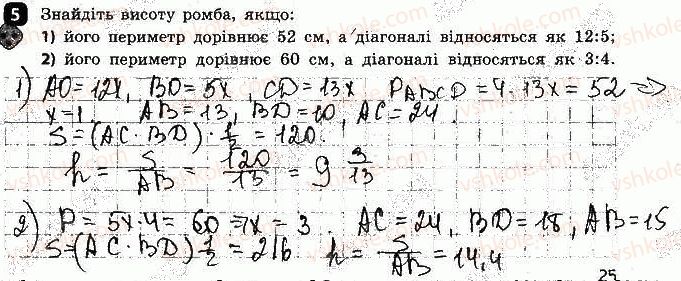 5 Знайдіть висоту ромба, якщо:
1) його периметр дорівнює 52 см, а діагоналі відносяться як 12:5;
2) його периметр дорівнює 60 см, а діагоналі відносяться як 3:4.
1) AO=12x, BO=5x, CD=13x P_ABCD = 4·13x = 52 =>
x=1. AB=13, BD=10, AC=24.
S=(AC·BD)·1/2 = 120.
h = S/AB = 120/13 = 9 3/13
2) P = 5x·4 = 60 => x = 3. AC=24, BD=18, AB=15
S=(AC·BD)1/2 = 216. h = S/AB = 14,4
25